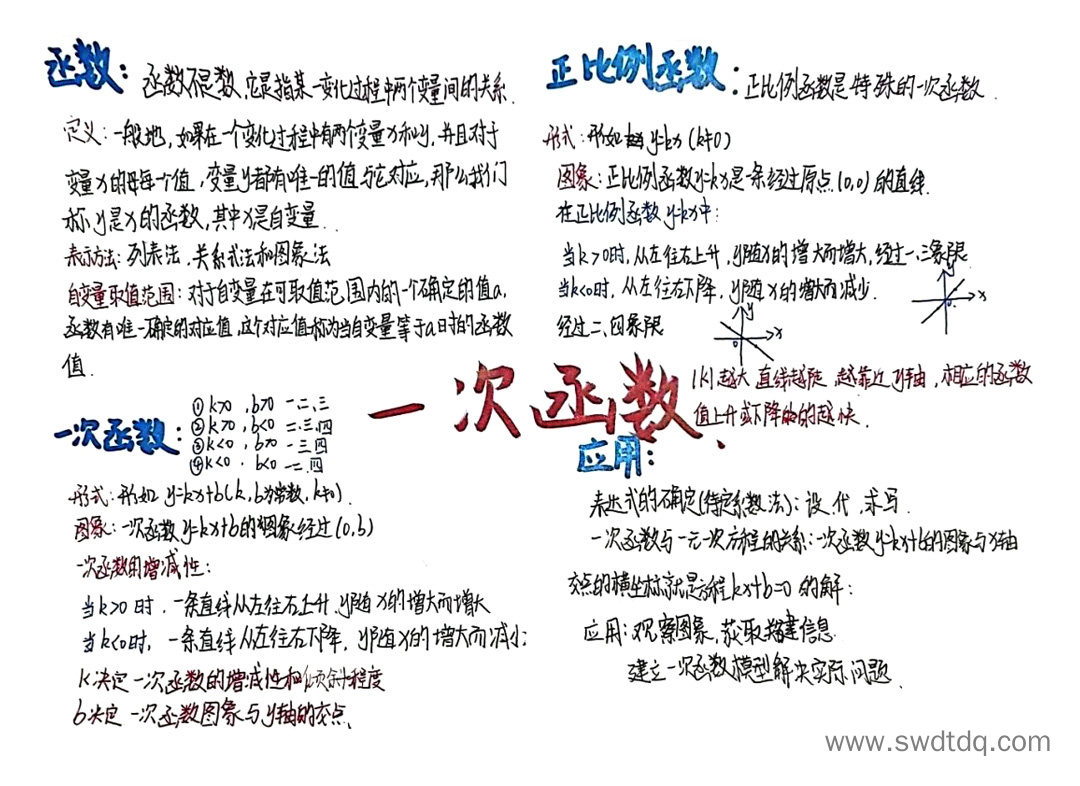 函数：函数不是数，它是指某一变化过程中两个变量间的关系.
定义：一般地，如果在一个变化过程中有两个变量x和y，并且对于
变量x的每每个值，变量y都有唯一的值与它对应，那么我们
称y是x的函数，其中x是自变量.
表示方法：列表法，关系式法和图象法
自变量取值范围：对于自变量在可取值范围内的一个确定的值a，
函数有唯一确定的对应值，这个对应值称为当自变量等于a时的函数
值.
正比例函数：正比例函数是特殊的一次函数.
形式：形如 y=kx (k≠0)
图象：正比例函数y=kx是一条经过原点(0,0)的直线.
在正比例函数y=kx中：
当k>0时，从左往右上升，y随x的增大而增大，经过一、三象限
当k<0时，从左往右下降，y随x的增大而减少.
经过二、四象限
y
x
0
y
x
0
|k|越大 直线越陡 越靠近y轴，相应的函数
值上升或下降的越快.
一次函数
一次函数：
①k>0，b>0 一二三
②k>0，b<0 二三四
③k<0，b>0 一三四
④k<0，b<0 一二四
形式：形如 y=kx+b(k,b为常数，k≠0)
图象：一次函数y=kx+b的图象经过(0,b)
一次函数的增减性：
当k>0时，一条直线从左往右上升，y随x的增大而增大
当k<0时，一条直线从左往右下降，y随x的增大而减小；
k决定一次函数的增减性和倾斜程度
b决定一次函数图象与y轴的交点、
应用：
表达式的确定(待定系数法)：设、代、求写.
一次函数与一元一次方程的关系：一次函数y=kx+b的图象与x轴
交点的横坐标就是方程kx+b=0的解；
应用：观察图象，获取构建信息.
建立一次函数模型解决实际问题.
www.swdtdq.com